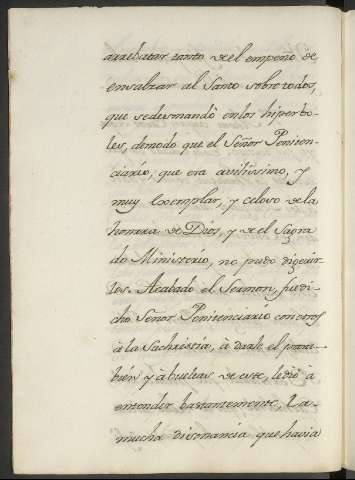 arrebatar tanto de el empeño de
ensalzar al Santo sobre todos,
que se desmandò en los hiperbo-
les, de modo que el Señor Peniten-
ciario, que era avilissimo, y
muy Exemplar, y celoso de la
honrra de Dios, y de el Sagra
do Ministerio, no pudo digerir
los. Acabado el Sermon, fue di-
cho Señor Penitenciario con otros
à la Sachristia, à darle el para-
bién y à bueltas de este, le diò à
entender bastantemente, la
mucha disonancia que havia